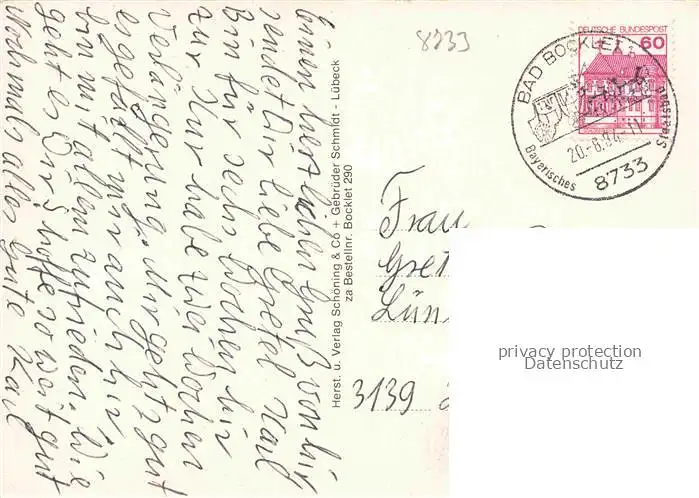 Einen herzlichen Gruß von hir
sendet Dir liebe Gretel Karl
Bin für sechs Wochen hir
zur Kur habe zwei Wochen
Verlängerung. Mir geht's gut
es gefällt mir auch hir
bin mit allem zufrieden. Wie
geht es Dir? hoffe so weit gut
Nochmals alles Gute Karl
Herst. u. Verlag Schöning & Co + Gebrüder Schmidt - Lübeck
za Bestellnr. Bocklet 290
8733
DEUTSCHE BUNDESPOST
60
BAD BOCKLET
20.-8.84-11
Bayerisches
Staatsbad
8733
Frau
Gret
Lün
3139
privacy protection
Datenschutz